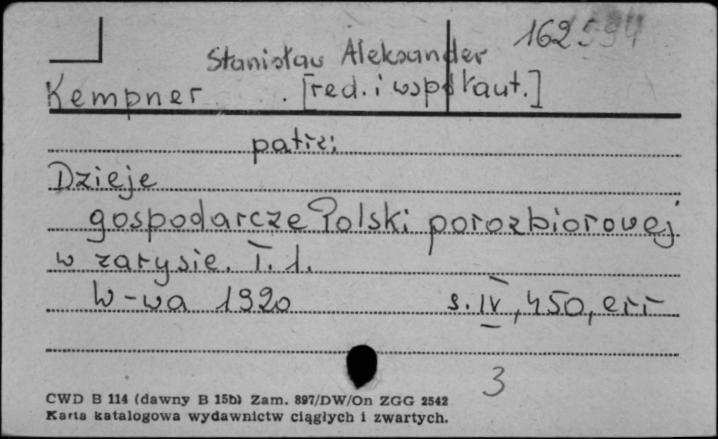 162594
Stanisław Aleksander
Kempner . [red. i współaut.]
patrz:
Dzieje
gospodarcze Polski porozbiorowej
w zarysie. T. 1.
W-wa 1920 s. IV, 450, err
3
CWD B 114 (dawny B 15b) Zam. 897/DW/On ZGG 2542
Karta katalogowa wydawnictw ciągłych i zwartych.